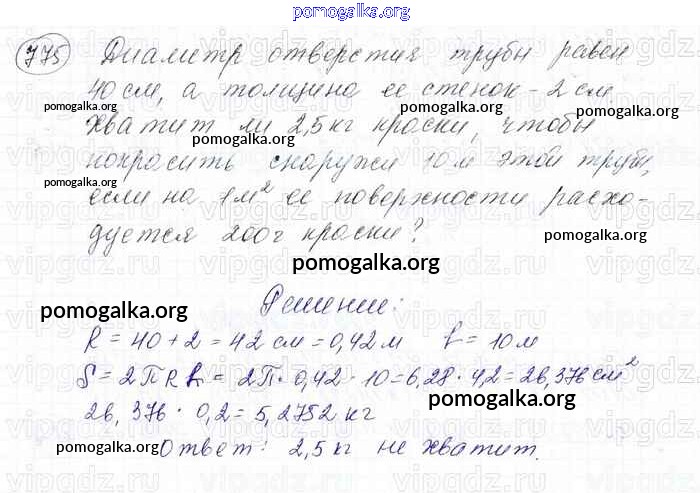 pomogalka.org
775 Диаметр отверстия трубы равен
40 см, а толщина ее стенок - 2 см.
pomogalka.org pomogalka.org
Хватит ли 2,5 кг краски, чтобы
pomogalka.org
покрасить снаружи 10 м этой трубы,
pomogalka.org pomogalka.org
если на 1 м² ее поверхности расхо-
дуется 200 г краски?
pomogalka.org
pomogalka.org
Решение:
pomogalka.org
R = 40 + 2 = 42 см = 0,42 м h = 10 м
S = 2πRh = 2π · 0,42 · 10 = 6,28 · 4,2 = 26,376 см²
pomogalka.org
26,376 · 0,2 = 5,2752 кг
pomogalka.org
Ответ: 2,5 кг не хватит.